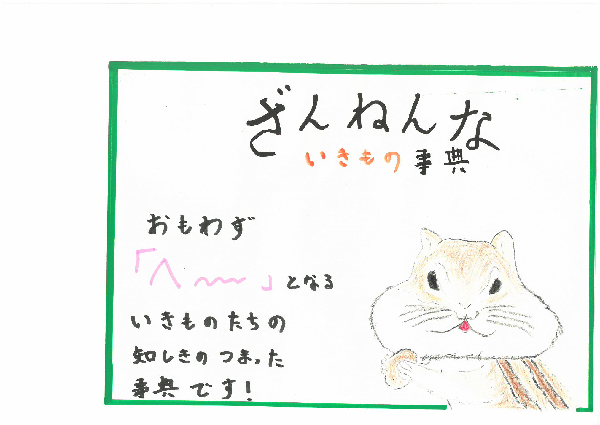 ざんねんな
いきもの事典
おもわず
「へ〜〜」となる
いきものたちの
知しきのつまった
事典です!